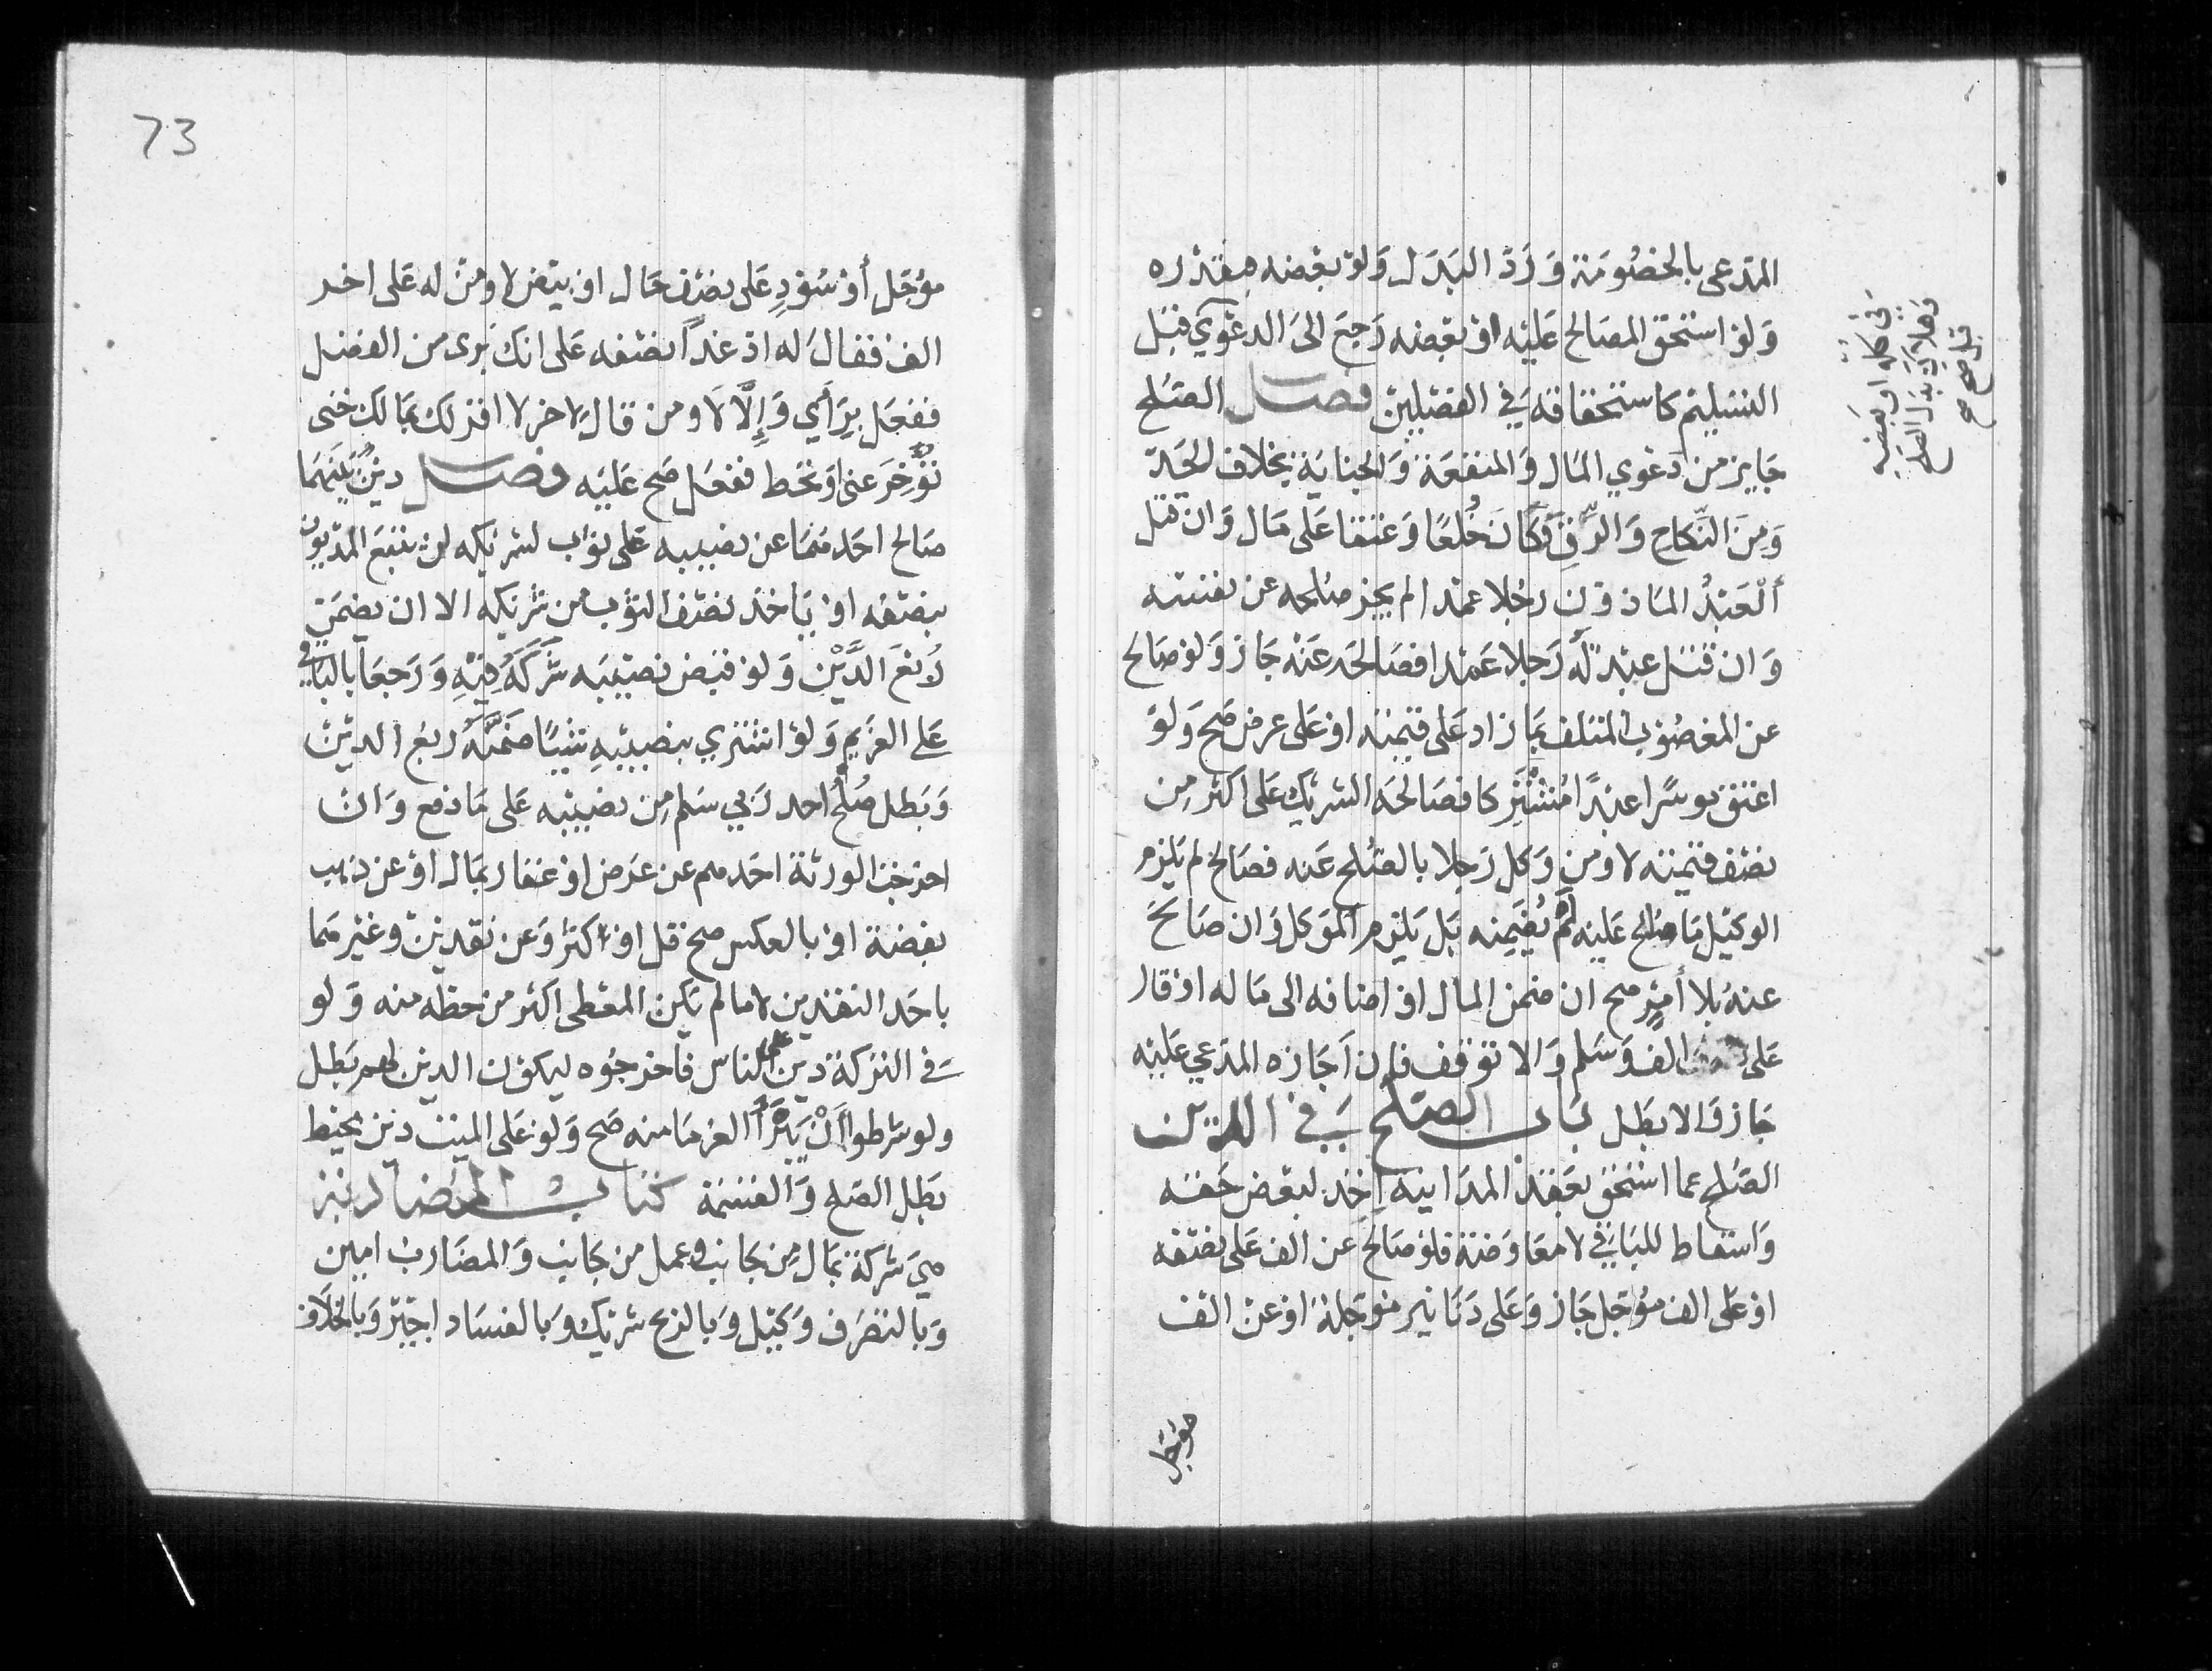 المدعى بالخصومة ورد البدل ولو بعضه بقدره
ولو استحق المصالح عليه او بعضه رجع الى الدعوي قبل
التسليم كاستحقاقه في الفصلين فصل الصلح
جايز من دعوي المال والمنفعة والجناية بخلاف الحد
ومن النكاح والرق وكان خلعا وعتقا على مال وان قتل
العبد الماذون رجلا عمدا لم يجز صلحه عن نفسه
وان قتل عبد له رجلا عمدا فصالحه عنه جاز ولو صالح
عن المغصوب المتلف بما زاد على قيمته او على عرض صح ولو
اعتق موسرا عبدا مشتركا فصالحه الشريك على اكثر من
نصف قيمته لا ومن وكل رجلا بالصلح عنه فصالح لم يلزم
الوكيل ما صالح عليه لم يضمنه بل يلزم الموكل وان صالح
عنه بلا أمر صح ان ضمن المال او اضافه الى ماله او قال
على الف وسلم والا توقف فان اجازه المدعي عليه
جاز والا بطل باب الصلح في الدين
الصلح عما استحق بعقد المداينه اخذ لبعض حقه
واسقاط للباقي لا معاوضة فلو صالح عن الف على نصفه
او على الف مؤجل جاز وعلى دنانير موجلة او عن الف
موجل
في كله او بعضه
وهلاك بدل الصلح
قبل صح صح
73
مؤجل أو سود على نصف حال او بيض لا ومن له على اخر
الف فقال له اد غدا نصفه على انك بري من الفضل
ففعل برأي وإلا لا ومن قال لاخر لا اقر لك بما لك حتى
تؤخر عني او تحط ففعل صح عليه فصل دين بينهما
صالح احدهما عن نصيبه على ثوب لشريكه ان يتبع المديون
بنصفه او ياخذ نصف الثوب من شريكه الا ان يضمن
ربع الدين ولو قبض نصيبه شركه فيه ورجعا بالباقي
على الغريم ولو اشتري بنصيبه شيئا ضمنه ربع الدين
وبطل صلح احد ربي سلم من نصيبه على ما دفع وان
اخرجت الورثة احدهم عن عرض او عقار بمال او عن ذهب
بفضة او بالعكس صح قل او اكثر وعن نقدين وغيرهما
باحد النقدين لا ما لم يكن المعطى اكثر من حظه منه ولو
في التركة دين على الناس فاخرجوه ليكون الدين لهم بطل
ولو شرطوا أن يبرأ الغرما منه صح ولو على الميت دين محيط
بطل الصلح والقسمة كتاب المضاربة
هي شركة بمال من جانب وعمل من جانب والمضارب امين
وبالتصرف وكيل وبالربح شريك وبالفساد اجير وبالخلاف